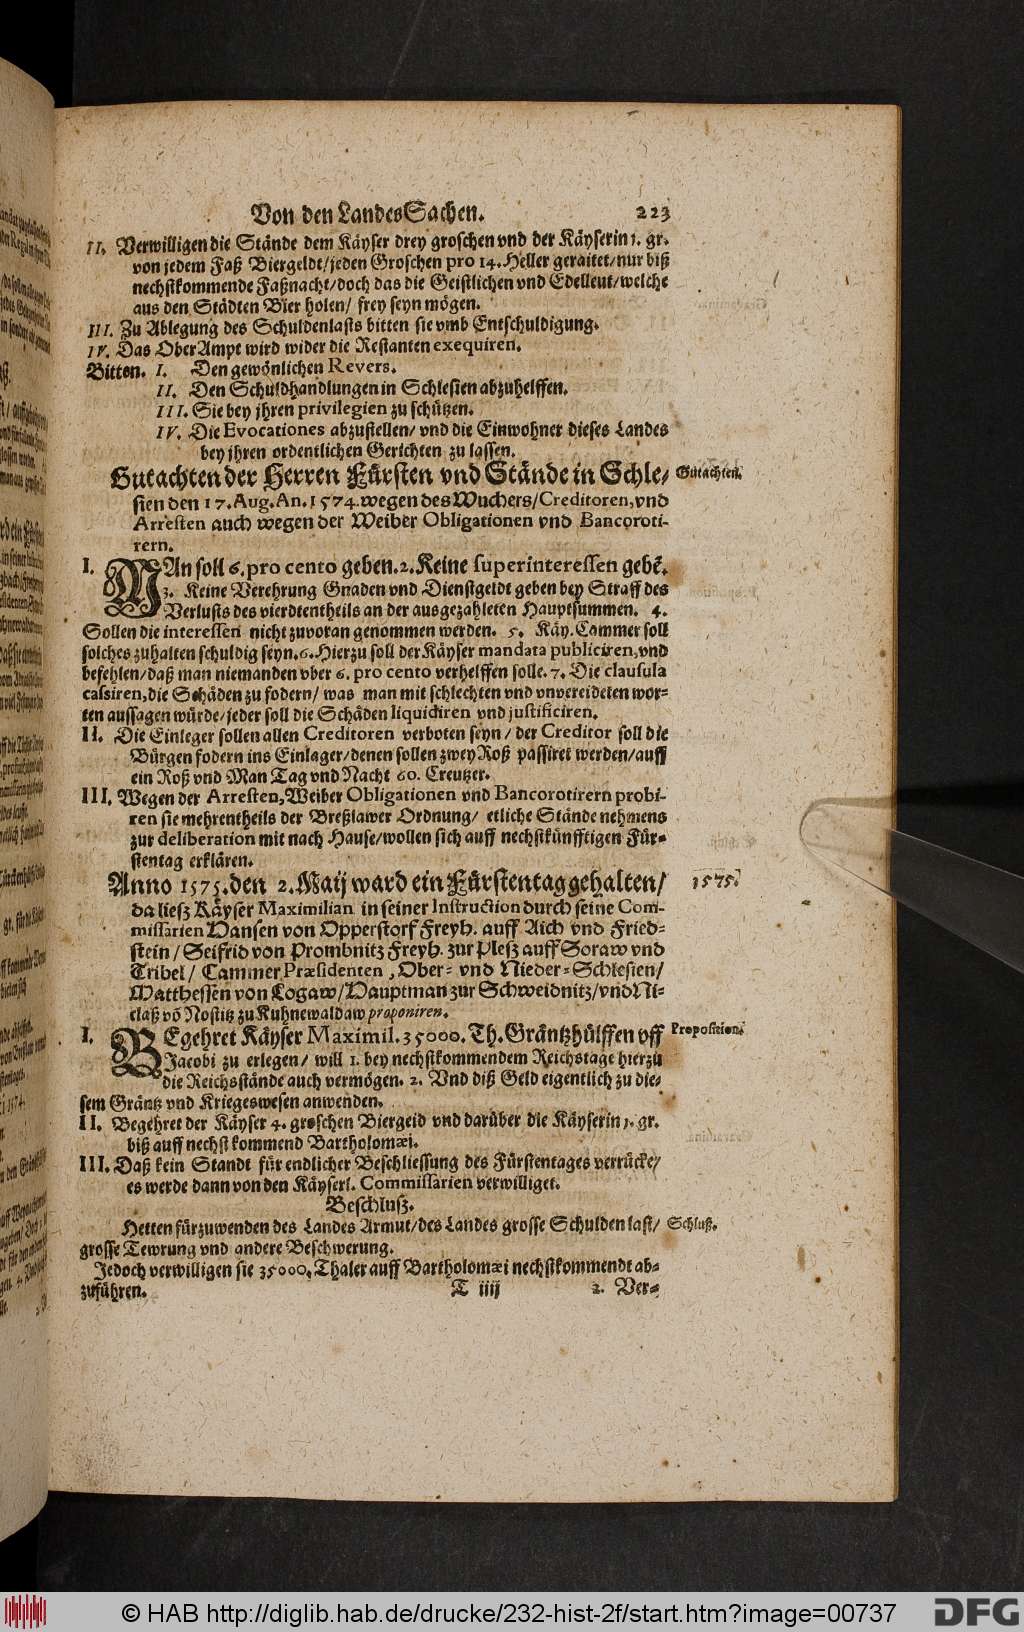 Von den LandesSachen. 223
II. Verwilligen die Stände dem Käyser drey groschen vnd der Käyserin 1. gr.
von jedem Faß Biergeldt/jeden Groschen pro 14. Heller geraitet/nur biß
nechstkommende Faßnacht/doch das die Geistlichen vnd Edelleut/welche
aus den Städten Bier holen/ frey seyn mögen.
III. Zu Ablegung des Schuldenlasts bitten sie vmb Entschuldigung.
IV. Das OberAmpt wird wider die Restanten exequiren.
Bitten. I. Den gewönlichen Revers.
II. Den Schuldhandlungen in Schlesien abzuhelffen.
III. Sie bey jhren privilegien zu schützen.
IV. Die Evocationes abzustellen/ vnd die Einwohner dieses Landes
bey jhren ordentlichen Gerichten zu lassen.
Gutachten der Herren Fürsten vnd Stände in Schle- Gutachten.
sien den 17. Aug. An. 1574. wegen des Wuchers/Creditoren, vnd
Arresten auch wegen der Weiber Obligationen vnd Bancoroti-
rern.
I. MAn soll 6. pro cento geben. 2. Keine superinteressen gebē.
3. Keine Verehrung Gnaden vnd Dienstgeldt geben bey Straff des
Verlusts des vierdtentheils an der ausgezahleten Hauptsummen. 4.
Sollen die interessen nicht zuvoran genommen werden. 5. Käy. Cammer soll
solches zuhalten schuldig seyn. 6. Hierzu soll der Käyser mandata publiciren, vnd
befehlen/daß man niemanden vber 6. pro cento verhelffen solle. 7. Die clausula
cassiren, die Schäden zu fodern/ was man mit schlechten vnd vnvereideten wor-
ten aussagen würde/jeder soll die Schäden liquidiren vnd justificiren.
II. Die Einleger sollen allen Creditoren verboten seyn/ der Creditor soll die
Bürgen fodern ins Einlager/denen sollen zwey Roß passiret werden/auff
ein Roß vnd Man Tag vnd Nacht 60. Creutzer.
III. Wegen der Arresten, Weiber Obligationen vnd Bancorotirern probi-
ren sie mehrentheils der Breßlawer Ordnung/ etliche Stände nehmens
zur deliberation mit nach Hause/wollen sich auff nechstkünfftigen Für-
stentag erklären.
Anno 1575. den 2. Maij ward ein Fürstentag gehalten/ 1575.
da liesz Käyser Maximilian in seiner Instruction durch seine Com-
missarien Hansen von Opperstorf Freyh. auff Aich vnd Fried-
stein/ Seifrid von Prombnitz Freyh. zur Plesz auff Soraw vnd
Tribel/ Cammer Præsidenten, Ober- vnd Nieder-Schlesien/
Matthessen von Logaw/Hauptman zur Schweidnitz/vnd Ni-
claß vō Nostitz zu Kuhnewaldaw proponiren.
I. BEgehret Käyser Maximil. 35000. Th. Gräntzhülffen vff Proposition.
Jacobi zu erlegen/ will 1. bey nechstkommendem Reichstage hierzu
die Reichsstände auch vermögen. 2. Vnd diß Geld eigentlich zu die-
sem Gräntz vnd Kriegeswesen anwenden.
II. Begehret der Käyser 4. groschen Biergeld vnd darüber die Käyserin 1. gr.
biß auff nechst kommend Bartholomæi.
III. Daß kein Standt für endlicher Beschliessung des Fürstentages verrücke/
es werde dann von den Käyserl. Commissarien verwilliget.
Beschlusz.
Hetten fürzuwenden des Landes Armut/des Landes grosse Schulden last/ Schluß.
grosse Tewrung vnd andere Beschwerung.
Jedoch verwilligen sie 35000. Thaler auff Bartholomæi nechstkommendt ab-
zuführen. T iiij 2. Ver-
© HAB http://diglib.hab.de/drucke/232-hist-2f/start.htm?image=00737 DFG